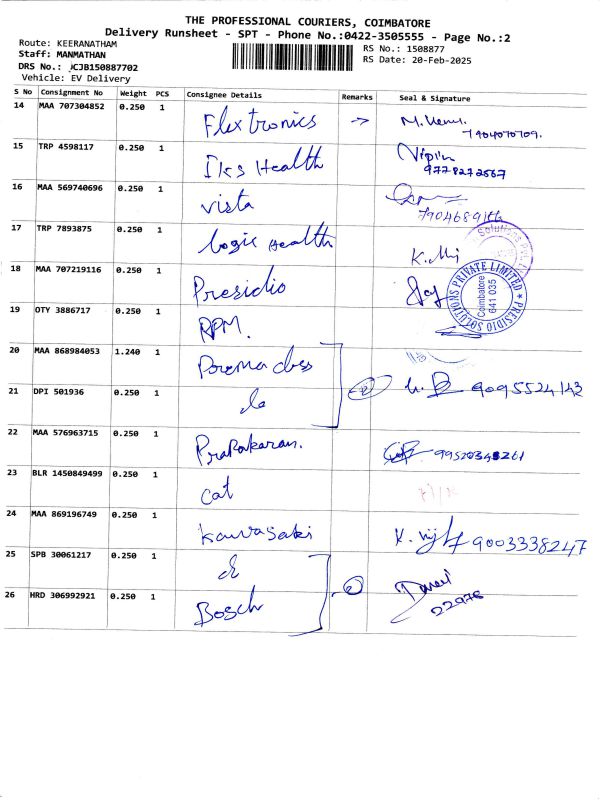 THE PROFESSIONAL COURIERS, COIMBATORE
Delivery Runsheet - SPT - Phone No.:0422-3505555 - Page No.:2
Route: KEERANATHAM
Staff: MANMATHAN
DRS No.: JCJB150887702
Vehicle: EV Delivery
RS No.: 1508877
RS Date: 20-Feb-2025
S No Consignment No Weight PCS Consignee Details Remarks Seal & Signature
14 MAA 707304852 0.250 1 Flextronics
15 TRP 4598117 0.250 1 Iks Health Vipin
9778272567
16 MAA 569740696 0.250 1 vista
17 TRP 7893875 0.250 1 logic Health
Solutions Pvt.
18 MAA 707219116 0.250 1 Presidio
PRESIDIO SOLUTIONS PRIVATE LIMITED
Coimbatore
641 035
19 OTY 3886717 0.250 1 RPM.
20 MAA 868984053 1.240 1
21 DPI 501936 0.250 1 9095524142
22 MAA 576963715 0.250 1 Prabakaran.
23 BLR 1450849499 0.250 1 cat
24 MAA 869196749 0.250 1 Kawasaki 9003338247
25 SPB 30061217 0.250 1
26 HRD 306992921 0.250 1 Bosch 22976